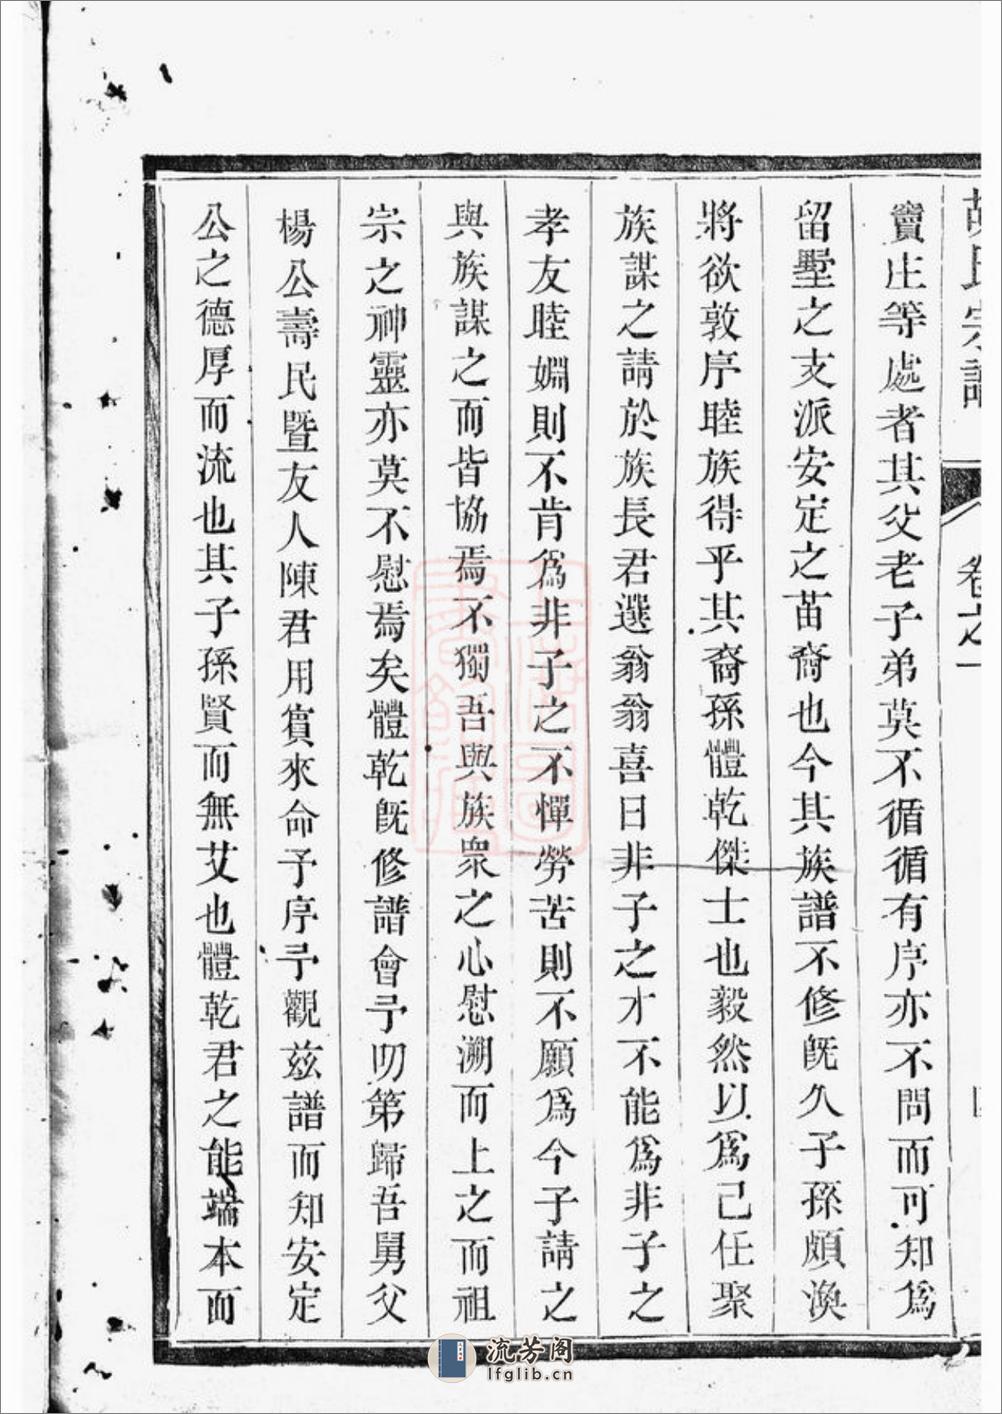 胡氏宗譜 卷之一
竇庄等處者其父老子弟莫不循循有序亦不問而可知爲
留墅之支派安定之苗裔也今其族譜不修旣久子孫頗渙
將欲敦序睦族得乎其裔孫體乾傑士也毅然以爲己任聚
族謀之請於族長君選翁翁喜曰非子之才不能爲非子之
孝友睦婣則不肯爲非子之不憚勞苦則不願爲今子請之
與族謀之而皆協焉不獨吾與族衆之心慰溯而上之而祖
宗之神靈亦莫不慰焉矣體乾旣修譜會予叨第歸吾舅父
楊公壽民暨友人陳君用賓來命予序予觀兹譜而知安定
公之德厚而流也其子孫賢而無艾也體乾君之能端本而
流芳阁
lfglib.cn